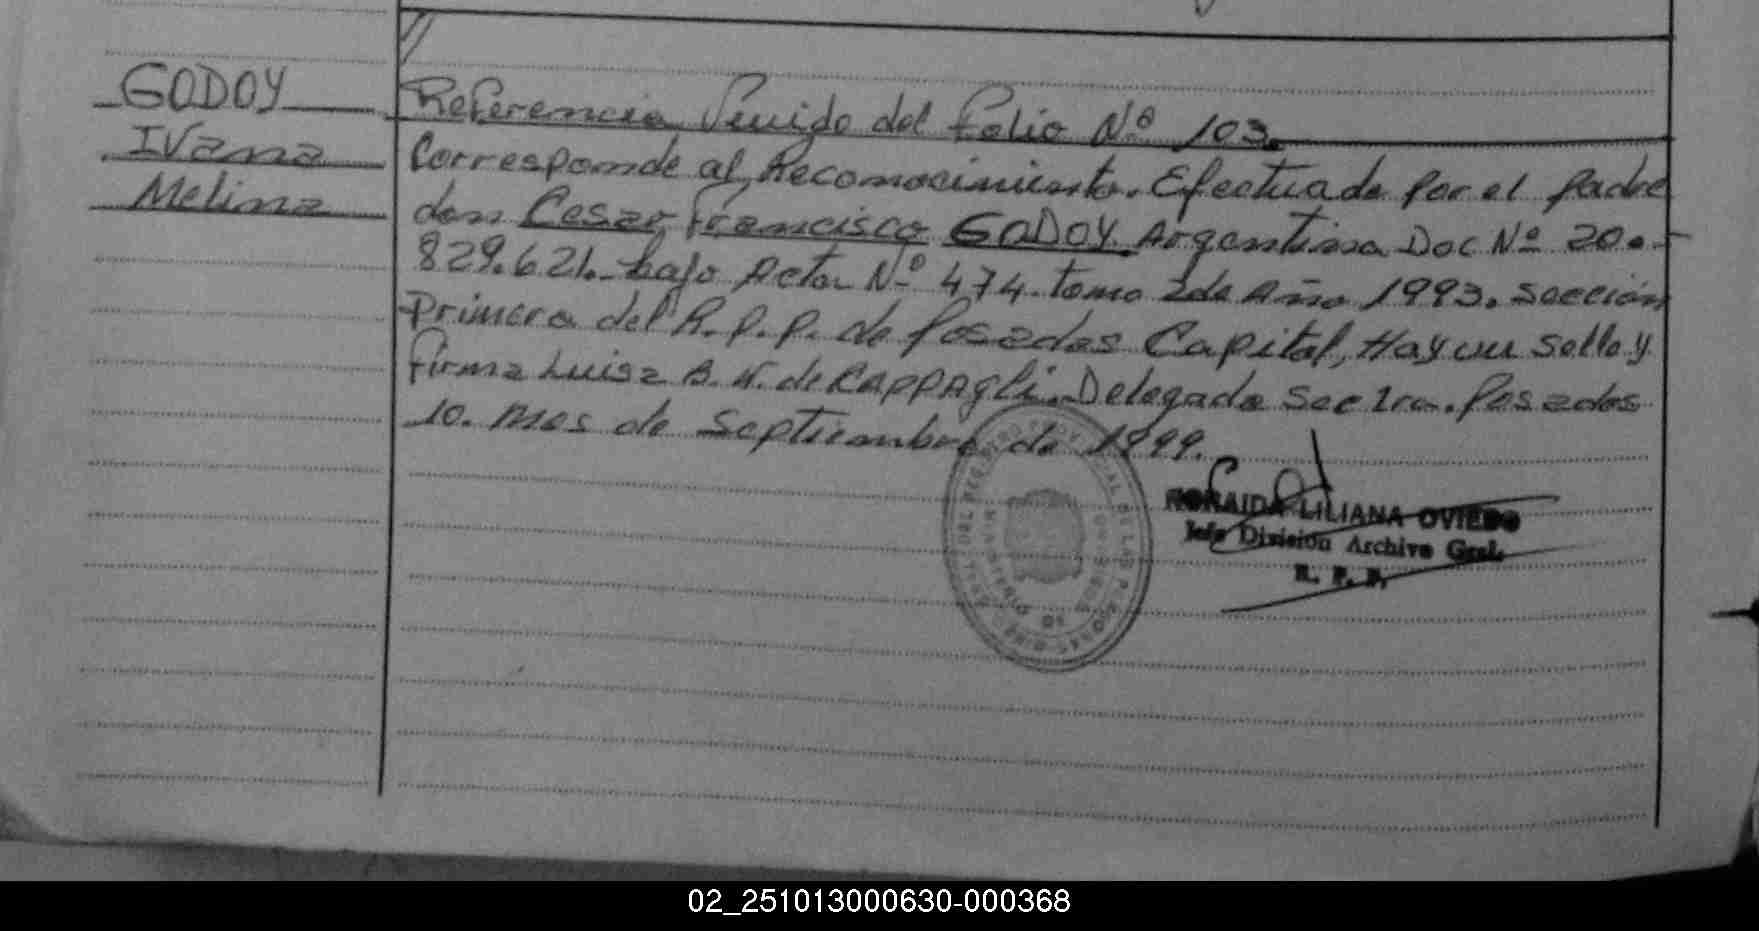 GODOY
Ivana
Melina
Referencia Venido del folio Nº 103.
Corresponde al Reconocimiento. Efectuado por el padre
don Cesar Francisco GODOY. Argentino Doc Nº 20.
829.621. bajo Acta Nº 474. tomo 2do Año 1993. sección
Primera del R.P.P. de Posadas Capital, Hay un sello y
firma Luisa B. N. de CAPPAGLi. Delegada Sec 1ra. Posadas
10. Mes de Septiembre de 1999.
LILIANA OVIEDO
Jefe División Archivo Gral.
R. P. P.
02_251013000630-000368